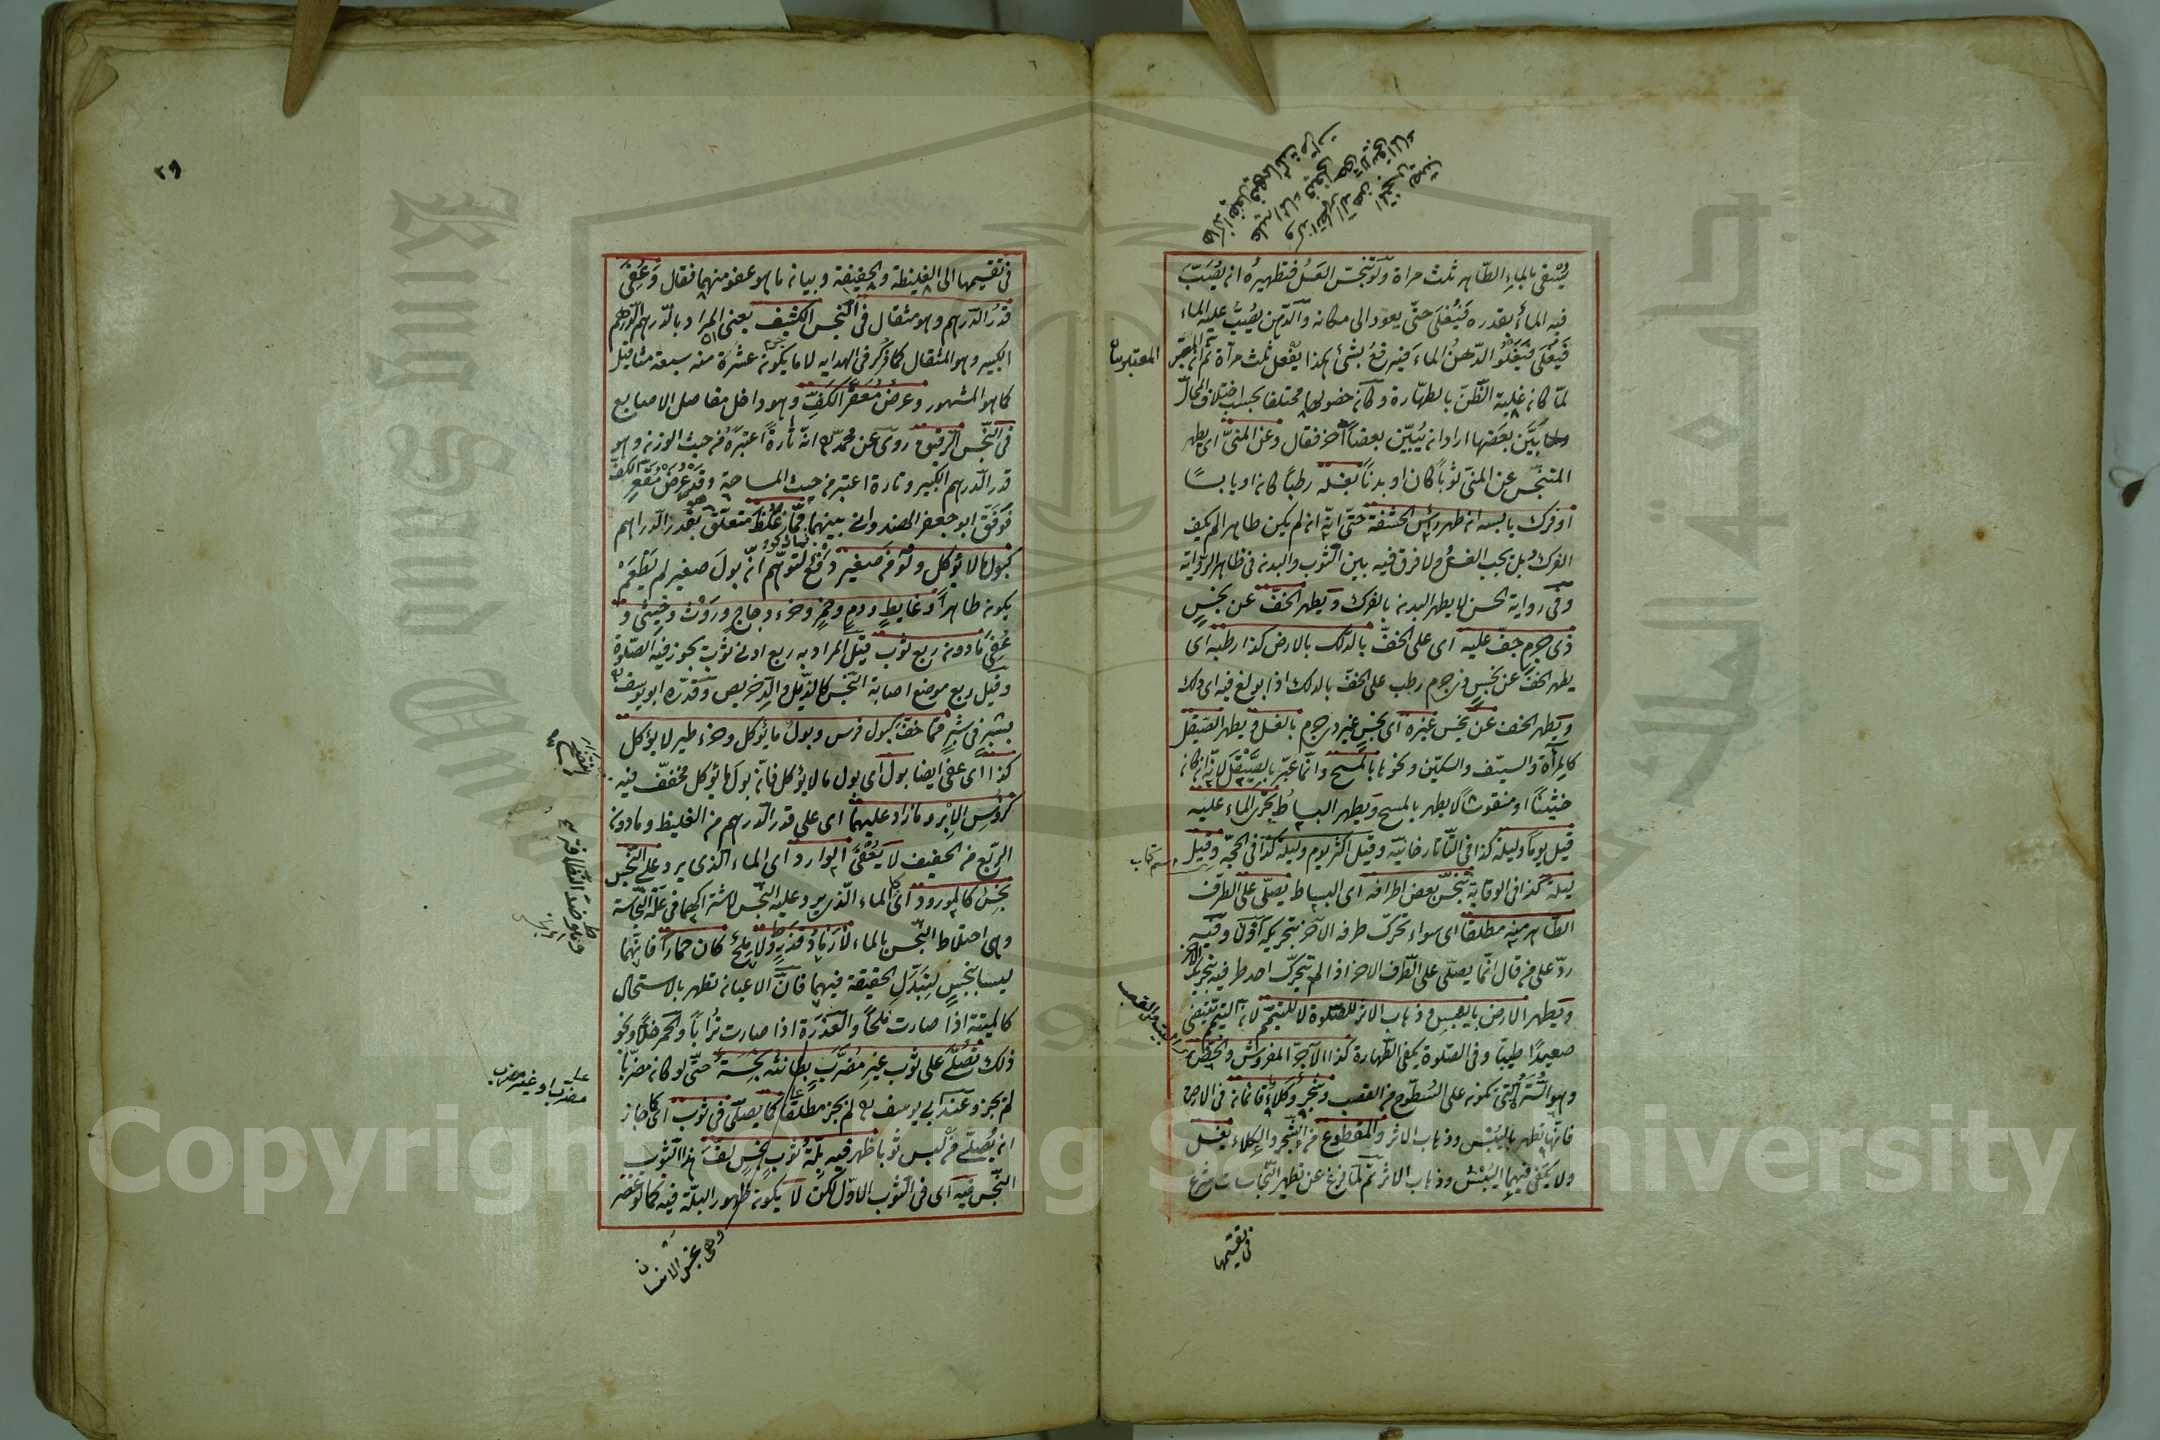 يسقى بالماء الطاهر ثلث مراة ولو تنجس العسل فتطهيره ان يصب
فيه الماء بقدره فيغلى حتى يعود الى مكانه والدهن يصب عليه الماء
فيغلى فيعلو الدهن الماء فيرفع بشئ هكذا يفعل ثلث مراة ثم ان المعتبر
لما كان غلبة الظن بالطهارة وكان حصولها مختلفا بحسب اختلاف المحال
بين بعضها اراد ان يبين بعضا آخر فقال وعن المنى اى يطهر
المتنجس عن المنى ثوبا كان او بدنا بغسله رطبا كان او يابسا
او فرك يابسه ان طهر رأس الحشفة حتى انه ان لم يكن طاهرا لم يكف
الفرك بل يجب الغسل ولا فرق فيه بين الثوب والبدن فى ظاهر الرواية
وفى رواية الحسن لا يطهر البدن بالفرك ويطهر الخف عن نجس
ذى جرم جف عليه اى على الخف بالدلك بالارض كذا رطبه اى
يطهر الخف عن نجس ذى جرم رطب على الخف بالدلك اذا بولغ فيه اى ذلك
ويطهر الخف عن نجس غيره اى نجس غير ذى جرم بالغسل ويطهر الصيقل
كالمرآة والسيف والسكين ونحوها بالمسح وانما عبر بالصيقل لانه ان كان
خشينا او منقوشا لا يطهر بالمسح ويطهر البساط بجرى الماء عليه
قيل يوما وليلة كذا فى التاتارخانية وقيل اكثر يوم وليلة كذا فى الحجة وقيل
ليلة كذا فى الوقاية تنجس بعض اطرافه اى البساط يصلى على الطرف
الطاهر منه مطلقا اى سواء تحرك طرفه الآخر بتحريكه اولا وفيه
رد على من قال انما يصلى على الطرف الاخر اذا لم يتحرك احد طرفيه بتحريك الآخر
ويطهر الارض باليبس وذهاب الاثر للصلوة لا للتيمم لان التيمم يقتضى
صعيدا طيبا وفى الصلوة يكفى الطهارة كذا الآجر المفروش والخص
وهو السترة التى تكون على السطوح من القصب وشجر وكلاء قائمان فى الارض
فانها تطهر باليبس وذهاب الاثر والمقطوع من الشجر والكلاء يغسل
ولا يكفى فيهما اليبس وذهاب الاثر ثم لما فرغ عن تطهير النجاسات شرع
فى تقسيمها
٢٩
فى تقسيمها الى الغليظة والخفيفة وبيان ما هو عفو منهما فقال وعفى
قدر الدرهم وهو مثقال فى النجس الكثيف يعنى المراد بالدرهم الدرهم
الكبير وهو المثقال كما ذكر فى الهداية لا ما يكون عشرة منه سبعة مثاقيل
كما هو المشهور وعرض مقعر الكف وهو داخل مفاصل الاصابع
فى النجس الرقيق روى عن محمد انه تارة اعتبره من حيث الوزن وهو
قدر الدرهم الكبير وتارة اعتبر من حيث المساحة وهو قدر عرض مقعر الكف
فوفق ابو جعفر الهندوانى بينهما مما غلظ متعلق بقدر الدراهم
كبول ما لا يؤكل ولو من صغير دفع لتوهم ان بول صغير لم يطعم
يكون طاهرا وغايط ودم وخمر وخرء دجاج وروث وخثى و
عفى ما دون ربع ثوب قيل المراد به ربع ادنى ثوب يجوز فيه الصلوة
وقيل ربع موضع اصابة النجس كالذيل والدخريص وقدره ابو يوسف
بشبر فى شبر مما خف كبول فرس وبول ما يؤكل وخرء طير لا يؤكل
كذا اى عفى ايضا بول اى بول ما لا يؤكل فان بول ما يؤكل مخفف فيه
كرؤس الابر وما زاد عليهما اى على قدر الدرهم من الغليظ وما دون
الربع من الخفيف لا يعفى الوارد اى الماء الذى يرد على النجس
نجس كالمورود اى الماء الذى يرد عليه النجس لاشتراكهما فى علة النجاسة
وهى اختلاط النجس بالماء لا رماد قذر ولا ملح كان حمارا فانهما
ليسا بنجس لتبدل الحقيقة فيهما فان الاعيان تطهر بالاستحالة
كالميتة اذا صارت ملحا والعذرة اذا صارت ترابا والخمر خلا ونحو
ذلك تصلى على ثوب غير مضرب بطانته نجسة حتى لو كان مضربا
لم يجز وعند ابى يوسف لم يجز مطلقا كما يصلى فى ثوب اى كما جاز
ان يصلى من لبس ثوبا ظهر فيه بلة ثوب نجس لف هذا الثوب
النجس فيه اى فى الثوب الاول لكن لا يكون ظهور البلة فيه كما لو عصر
مضرب او غير مضرب
Copyright © King Saud University
King Saud University
1957